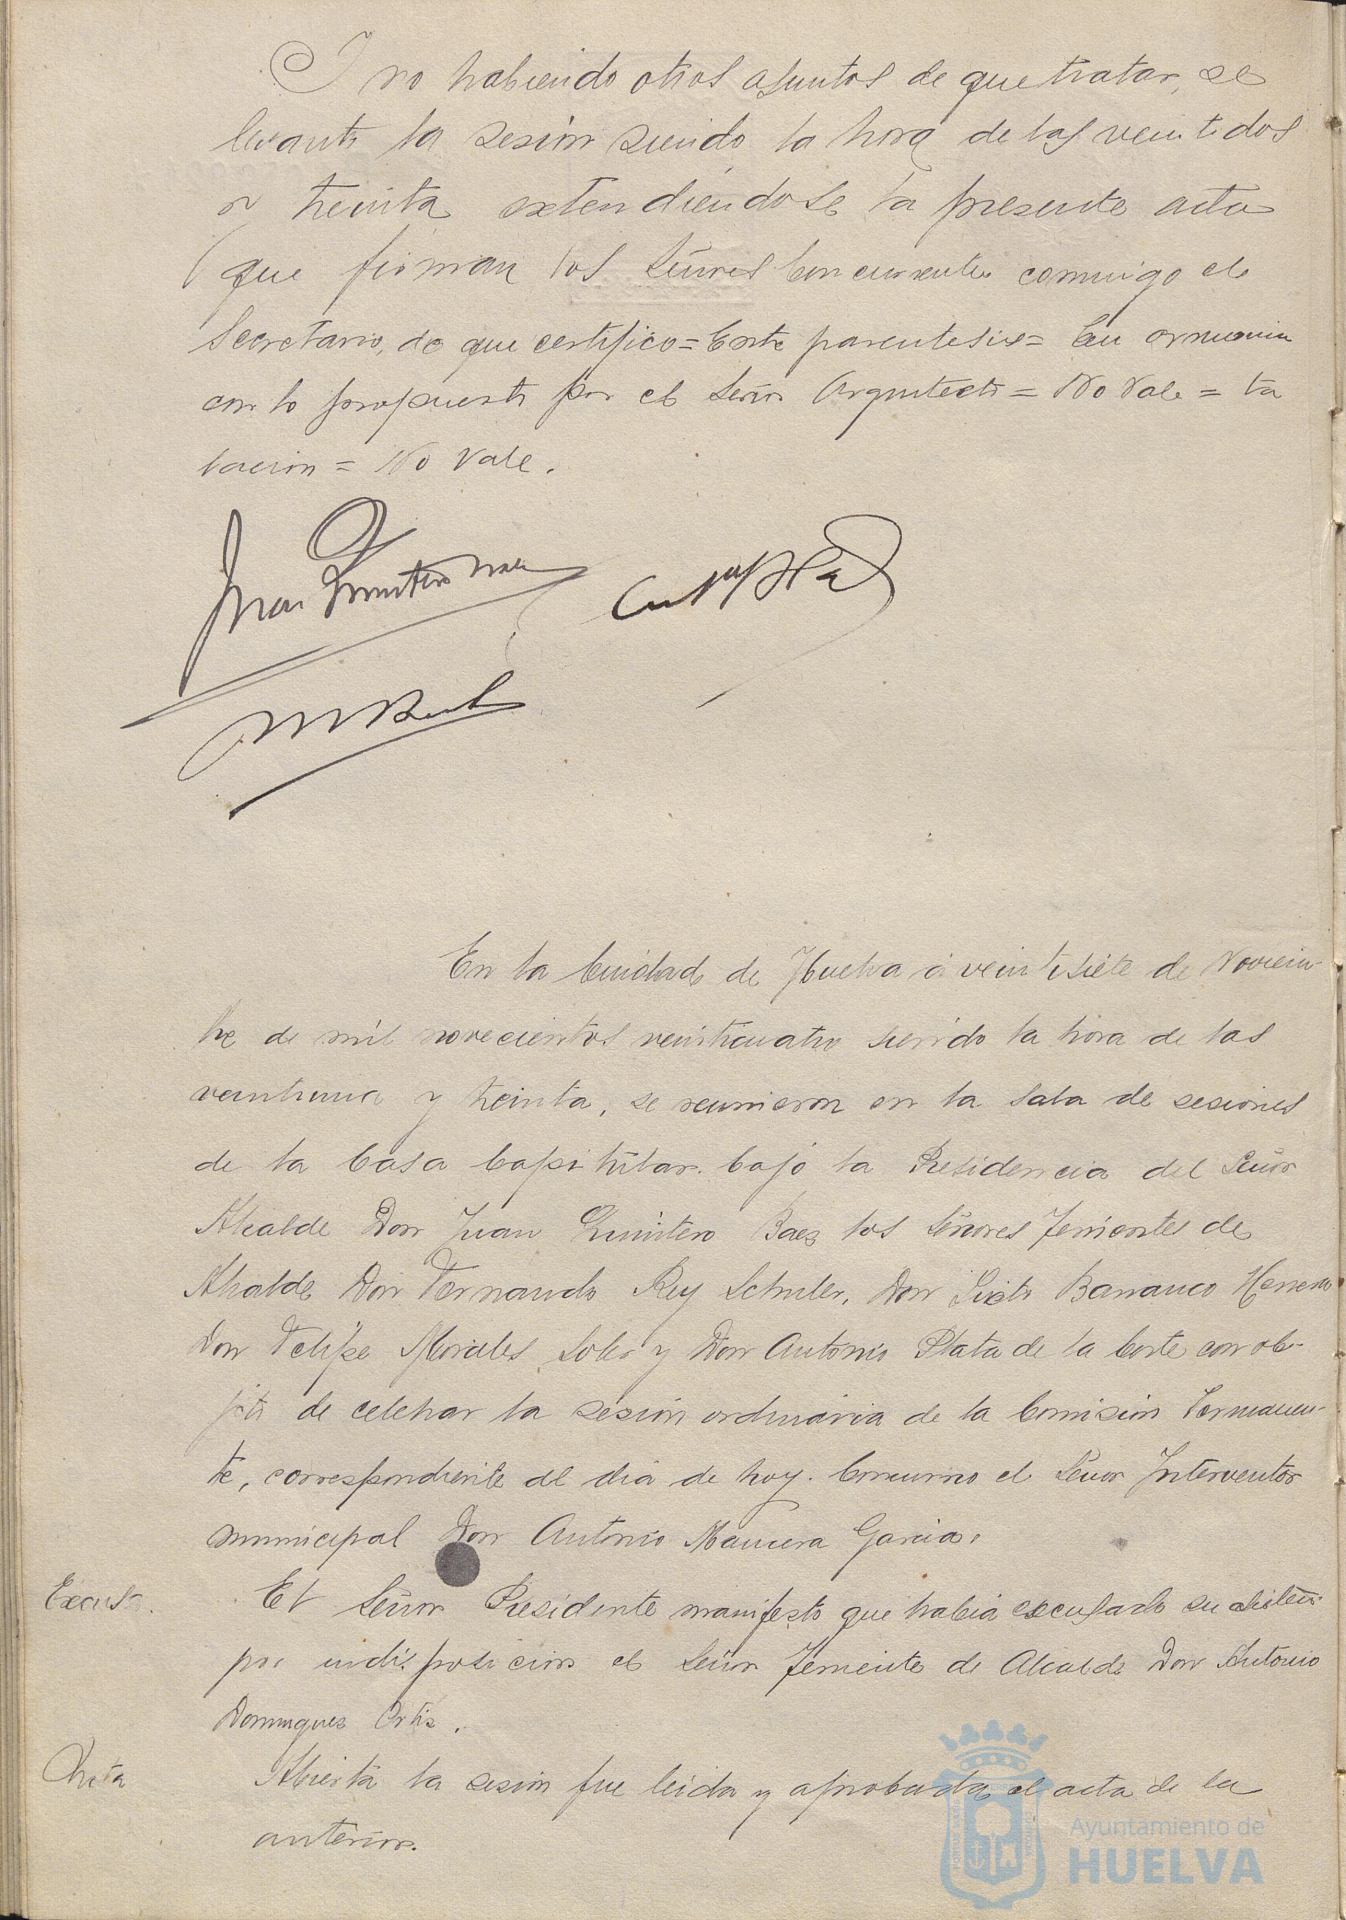 Y no habiendo otros asuntos de que tratar, se
levantó la sesión siendo la hora de las veintidos
y treinta extendiéndose la presente acta
que firman los Señores Concurrentes conmigo el
Secretario, de que certifico = Entre parentesis = En armonia
con lo propuesto por el Señor Arquitecto = No Vale = ta
tacion = No Vale.
Juan Quintero Baez
En la Ciudad de Huelva á veintisiete de Noviem-
bre de mil novecientos veinticuatro siendo la hora de las
veintiuna y treinta, se reunieron en la Sala de sesiones
de la Casa Capitular bajo la Presidencia del Señor
Alcalde Don Juan Quintero Baez los Señores Tenientes de
Alcalde Don Fernando Rey Schuler, Don Sixto Barranco Herrero
Don Felipe Morales Soler y Don Antonio Plata de la Corte con ob-
jeto de celebrar la sesión ordinaria de la Comisión Permanen-
te, correspondiente al dia de hoy. Concurrio el Señor Interventor
municipal Don Antonio Mancera Garcia.
Excusa. El Señor Presidente manifestó que habia excusado su asisten
por indisposición el Señor Teniente de Alcalde Don Antonio
Dominguez Ortiz.
Acta Abierta la sesión fue leida y aprobada el acta de la
anterior.
Ayuntamiento de
HUELVA